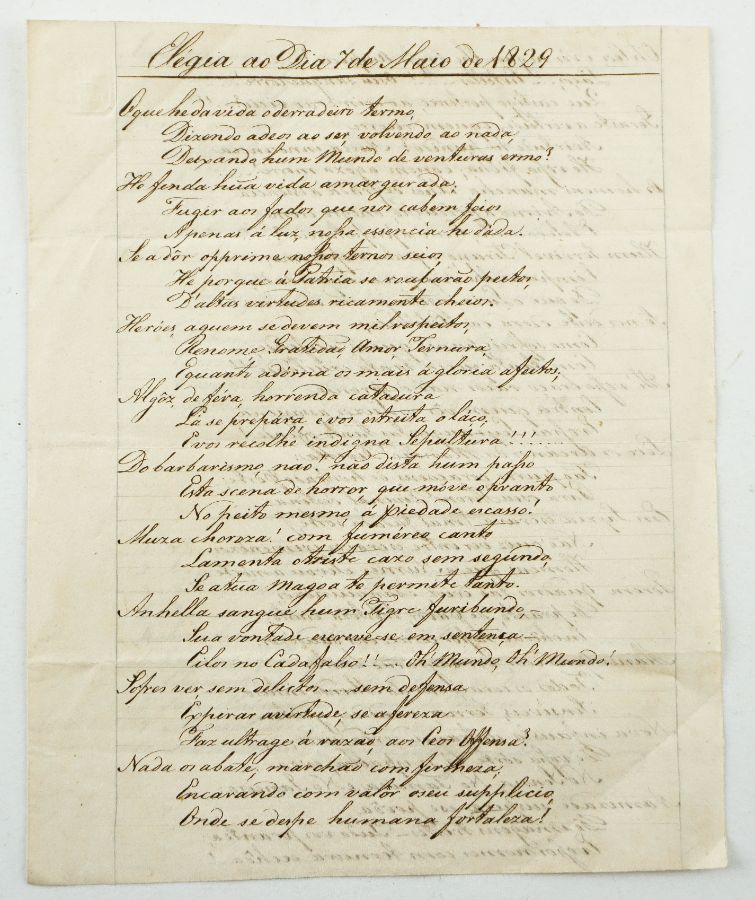 Elégia ao Dia 7 de Maio de 1829
O que he da vida o derradeiro termo,
Dizendo adeos ao ser, volvendo ao nada,
Deixando hum Mundo de venturas ermo?
He fenda hũa vida amargurada,
Fugir aos fados que nos cabem feios
Apenas á luz, nossa essencia he dada.
Se a dôr opprime nossos ternos seios,
He porque á Patria se roubarão peitos,
D'altas virtudes ricamente cheios.
Heróes, a quem se devem mil respeitos,
Renome, Gratidaõ, Amôr, Ternura,
E quanto adórna os mais á gloria afeitos;
Algôz, de féra, horrenda catadura
Lá se prepára, e vos estreita o láco,
E vos recolhe indigna Sepultura!!!....
Do barbarismo, naõ! não dista hum passo
Esta scena de horror, que móve o pranto
No peito mesmo, á piedade escasso!
Muza choroza! com funéreo canto
Lamenta o triste cazo sem segundo,
Se a tua Magoa te permite tanto.
Anhella sangue hum Tigre furibundo,
Sua vontade escreve-se em sentença
Eilos no Cadafalso!!... Oh' Mundo, Oh' Mundo!
Sofres ver, sem delictos... sem defensa
Expirar a virtude, se a fereza
Faz ultrage á razaõ, aos Ceos Offensa?
Nada os abate, marchaõ com firmeza,
Encarando com valôr o seu supplicio,
Onde se despe humana fortaleza!